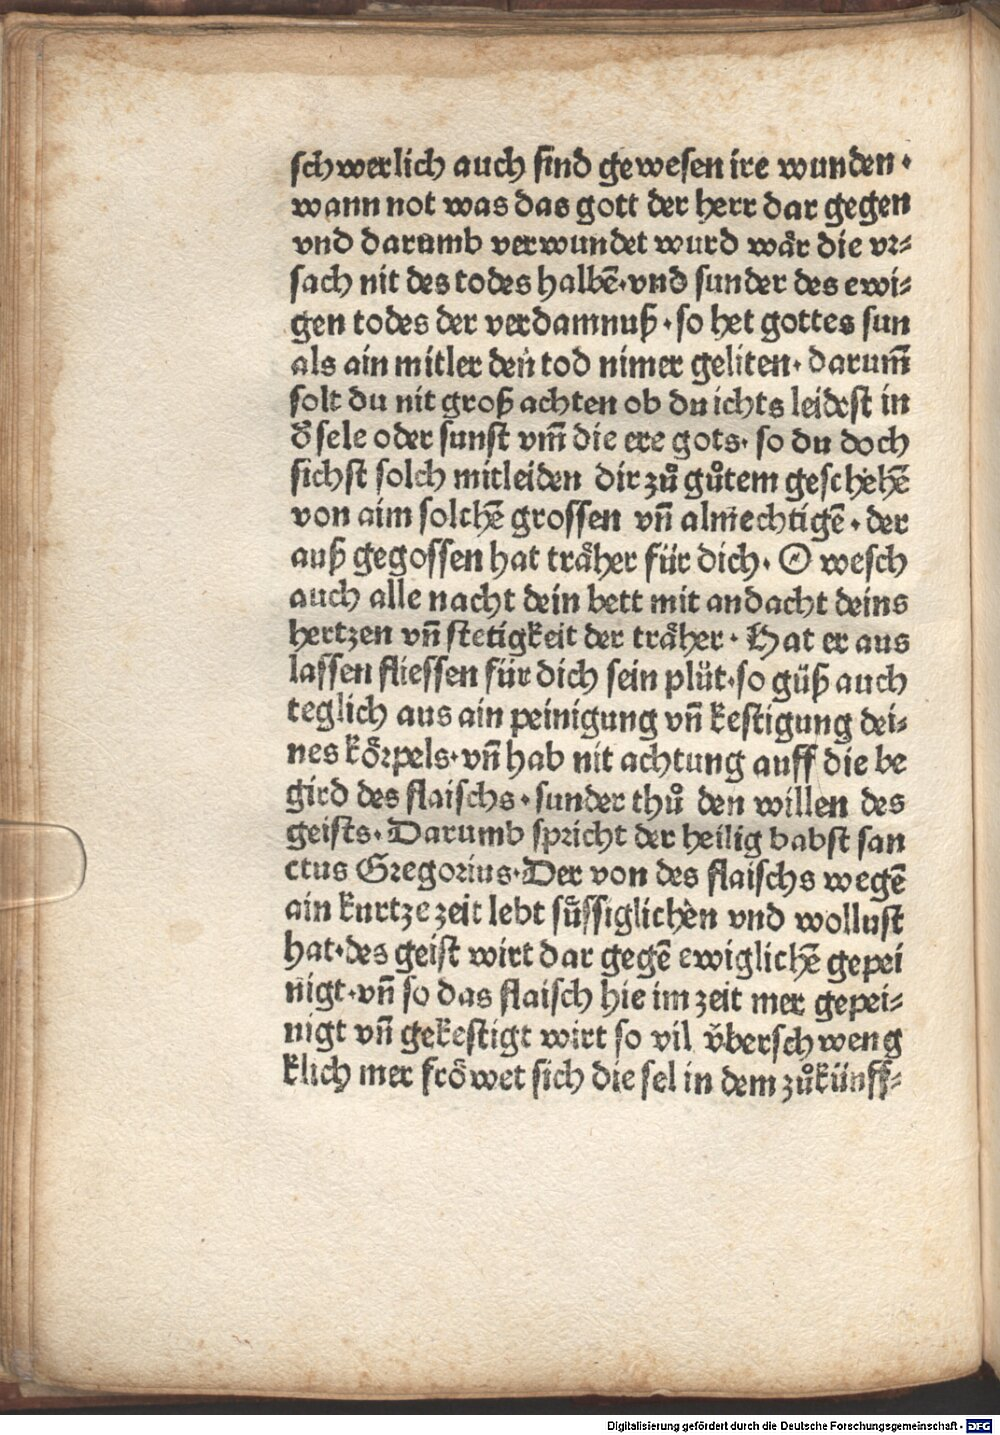 schwerlich auch sind gewesen ire wunden·
wann not was das gott der herr dar gegen
vnd darumb verwundet wurd wår die vr⸗
sach nit des todes halbē·vnd sunder des ewi⸗
gen todes der verdamnuß·so het gottes sun
als ain mitler den tod nimer geliten·darum̄
solt du nit groß achten ob du ichts leidest in
d̕ sele oder sunst vm̄ die ere gots·so du doch
sichst solch mitleiden dir zů gůtem geschehē
von aim solchē grossen vn̄ alm̄echtigē·der
auß gegossen hat tråher für dich·O wesch
auch alle nacht dein bett mit andacht deins
hertzen vn̄ stetigkeit der tråher·Hat er aus
lassen fliessen für dich sein plůt·so güß auch
teglich aus ain peinigung vn̄ kestigung dei⸗
nes kôrpels·vn̄ hab nit achtung auff die be
gird des flaischs·sunder thů den willen des
geists·Darumb spricht der heilig babst san
ctus Gregorius·Der von des flaischs wegē
ain kurtze zeit lebt sůssiglichen vnd wollust
hat·des geist wirt dar gegē ewiglichē gepei
nigt·vn̄ so das flaisch hie im zeit mer gepei⸗
nigt vn̄ gekestigt wirt so vil v̈berschweng
klich mer frôwet sich die sel in dem zůkünff⸗
Digitalisierung gefördert durch die Deutsche Forschungsgemeinschaft - DFG